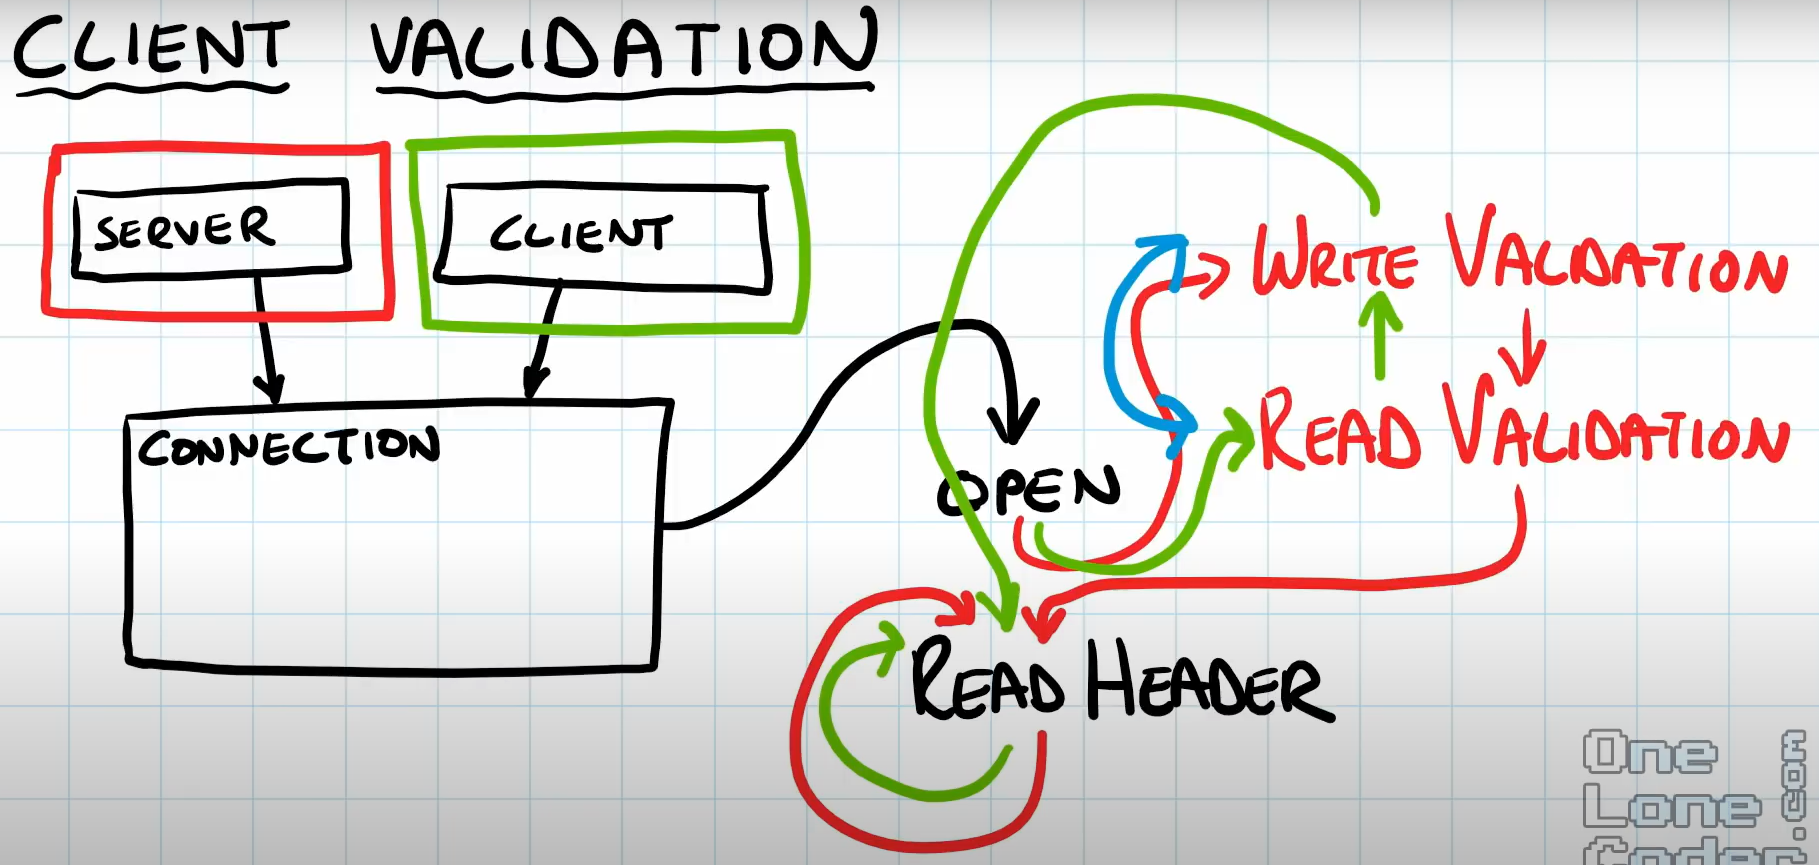 CLIENT VALIDATION
SERVER
CLIENT
CONNECTION
OPEN
WRITE VALIDATION
READ VALIDATION
READ HEADER
One
Lone
Coder
.com